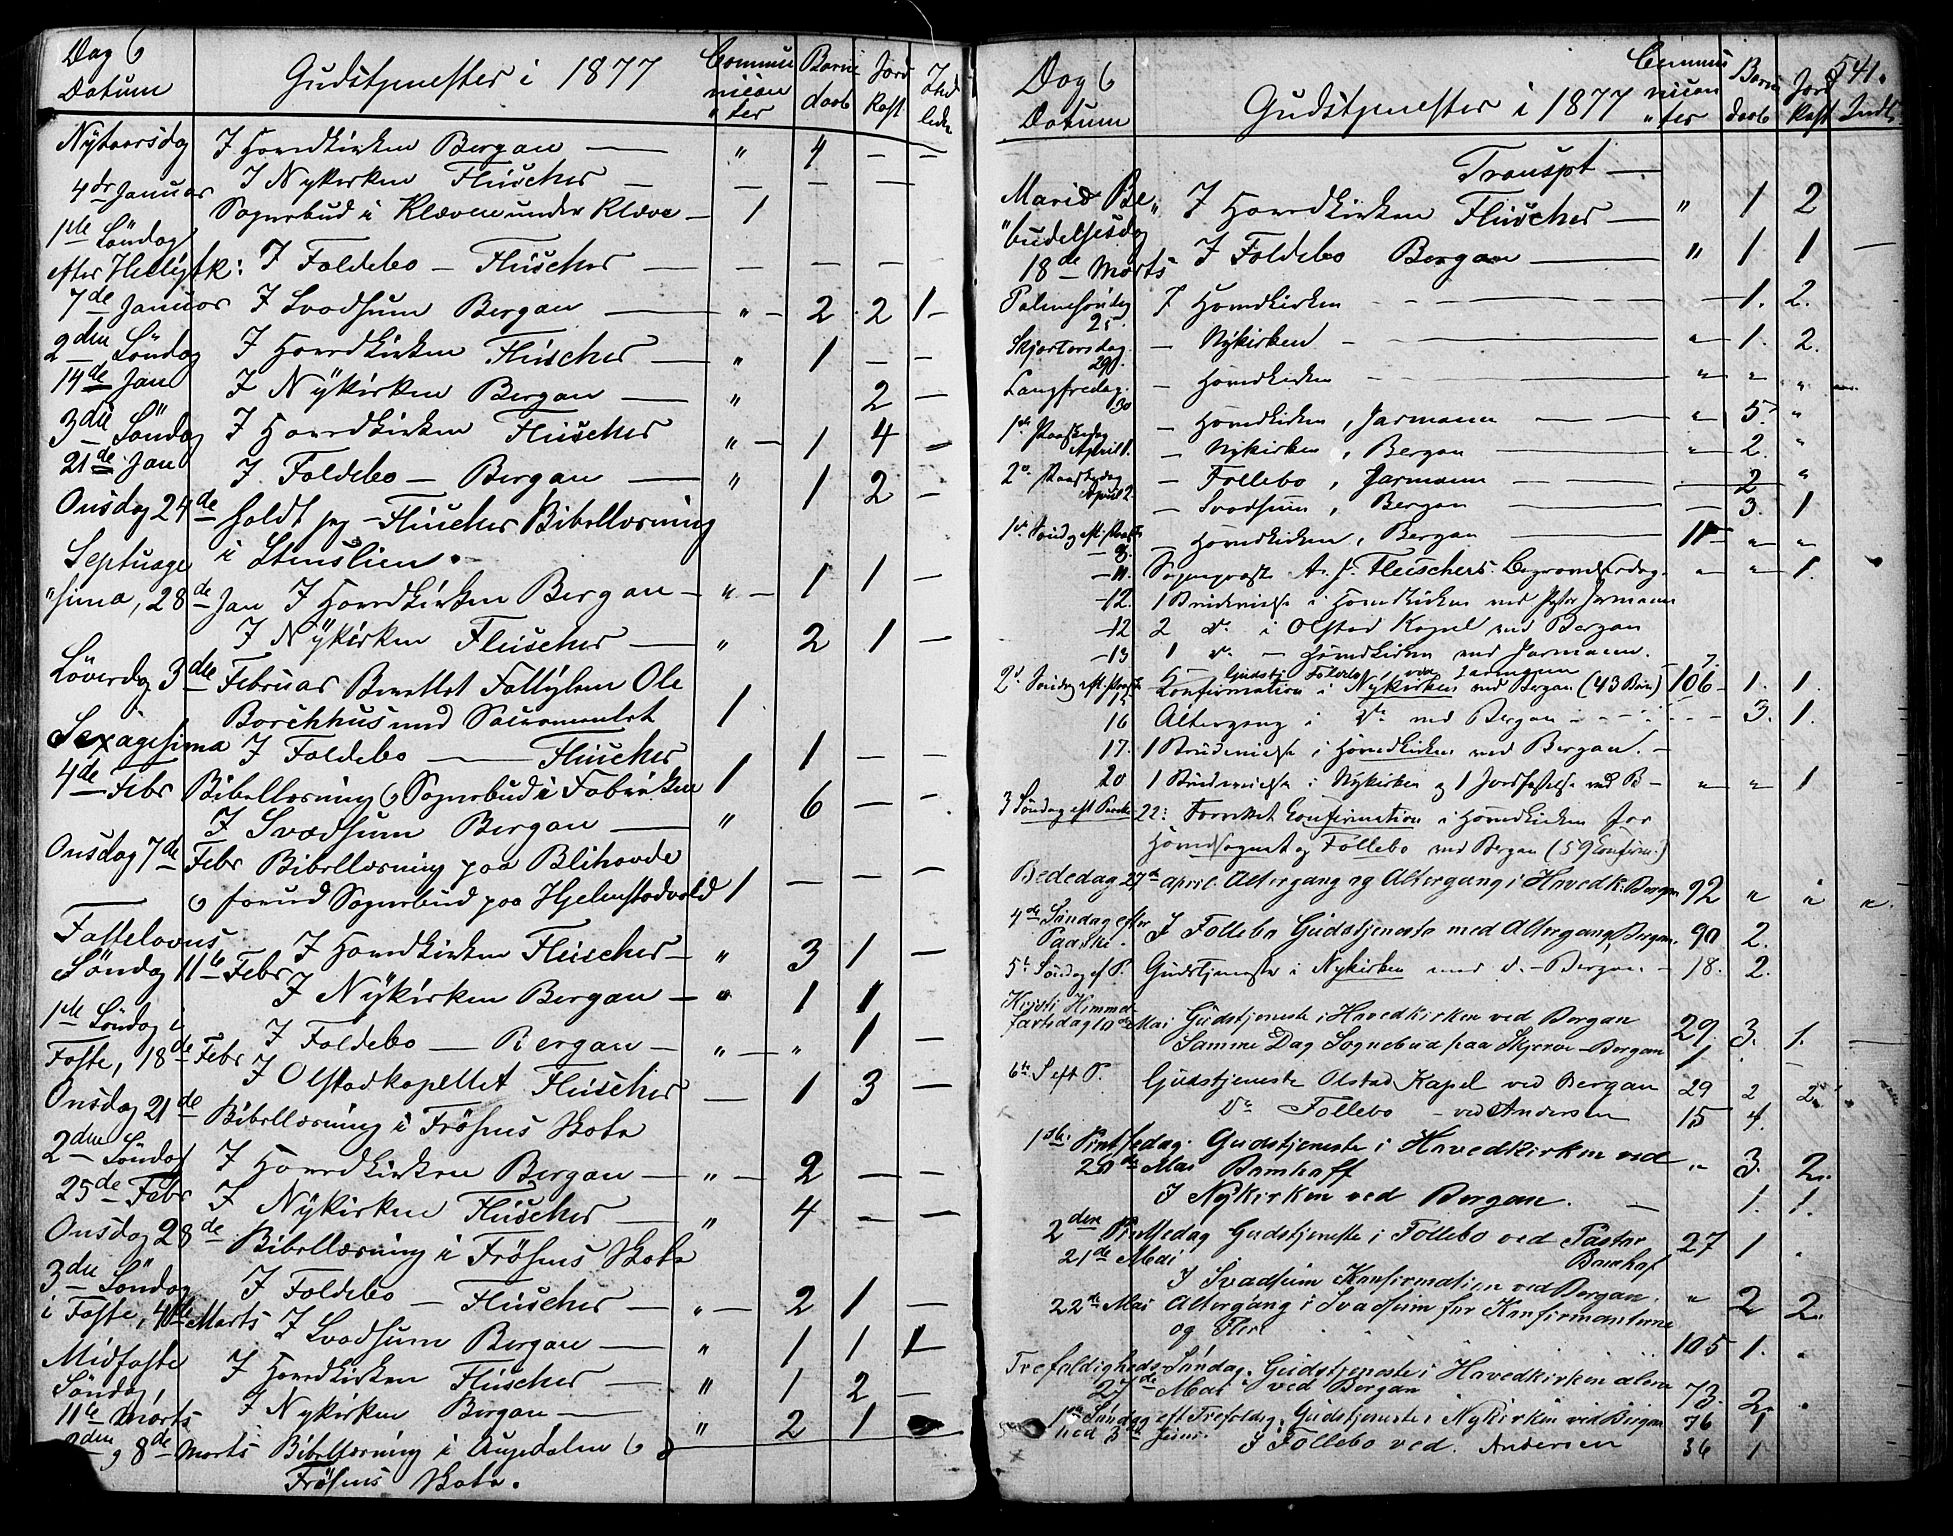 Dag &
Datum
Gudstjenester i 1877
Commu
nican
ter
Barne
daab
Jord
kast
Ind
leden
Nytaarsdag I Hovedkirken Bergan — " 4 — —
I Nykirken Fleischer — — — —
4de Januar Sognebud i Kleven under Kleve — 1
1ste Söndag
efter Helligtk: I Foldebo — Fleischer — — — — —
7de Januar I Svadsum Bergan — " — 2 2 1 —
2den Söndag I Hovedkirken Fleischer — " 1 — —
14de Jan I Nykirken Bergan — " 2 —
3die Söndag I Hovedkirken Fleischer " — 1 4 —
21de Jan I Foldebo — Bergan — " 1 2 —
Onsdag 24de holdt jeg — Fleischer Bibellæsning
i Stenslien.
Septuage
"sima, 28de Jan I Hovedkirken Bergan — " — 1 1 —
I Nykirken Fleischer — " 2 1 —
Löverdag 3die Februar Ole
Borchhus med Sacramentet 1
Sexagesima I Foldebo — Fleischer 1 — —
4de Febr Bibellæsning & Sognebud i Fabriken 1
I Svadsum Bergan — " 6 — —
Onsdag 7de Febr Bibellæsning paa Blihovde
& forud Sognebud paa Hjelmstadvold 1 — — —
Fastelavns
Söndag 11te Febr I Hovedkirken Fleischer — " 3 1 —
I Nykirken Bergan — " 1 1
1ste Söndag i
Faste, 18de Febr I Foldebo — Bergan — " — " 1 —
I Olstadkapellet Fleischer — 1 3 —
Onsdag 21de Bibellæsning i Frösens Skole
2den Söndag I Hovedkirken Bergan — " — 2 — —
25de Febr I Nykirken Fleischer — " 4 — —
Onsdag 28de Bibellæsning i Frösens Skole
3die Söndag I Foldebo — Fleischer — " — 2 1 —
i Faste, 4de Marts I Svadsum Bergan — " 1 1 1
Midfaste I Hovedkirken Fleischer — " 1 2 —
Söndag,
11te Marts I Nykirken Bergan — " 2 1
8de Marts Bibellæsning i Augedalen &
Frösens Skole.
Dag &
Datum
Gudstjenester i 1877
Commu
nican
"ter
Barne
daab
Jord
kast
541.
Indl.
Transpt —
Mariæ Be„
"budelsesdag I Hovedkirken Fleischer — " 1 2
18de Marts I Foldebo Bergan — " 1 1 —
Palmesöndag
25. I Hovedkirken — 1. 2.
Skjærtorsdag
29. — Nykirken — " 1. 2.
Langfredag
30 — Hovedkirken — " " "
1ste Paaskedag
April 1. — Hovedkirken, Jarmann — " 5. "
— Nykirken, Bergan — " 2. "
2d. Paaskedag
April 2. — Follebo, Jarmann — 2 "
— Svadsum, Bergan — 3. 1
1d. Söndag eft. Paaske
— 8. — Hovedkirken, Bergan — 11 — " "
— 11. Sogneprest A. J. Fleischers Begravelsesdag. " " 1.
— 12. 1 Brudevielse i Hovedkirken ved Pastor Jarmann
— 12 2 do. i Olstad Kapel ved Bergan
— 13 1 do. — Hovedkirken ved Jarmann.
— Gudstj Follebo, ved Jarmann 7.
2d. Söndag eft. Paaske
15 Konfirmation i Nykirken ved Bergan (43 Börn) 106 — 1. 1.
16 Altergang i do ved Bergan — 3. 1.
17. 1 Brudevielse i Hovedkirken ved Bergan. —
20 1 Brudevielse i Nykirken og 1 Jordfæstelse ved B — " " 1
3 Söndag eft Paaske 22: Forrettet Confirmation i Hovedkirken for
Hovedsognet og Follebo ved Bergan (59 Confirm.)
Bededag 27de april. Altergang og Altergang i Hovedk: Bergan 92 " " "
4de Söndag efter
Paaske. I Follebo Gudstjeneste med Altergang Bergan. 90 2.
5te Söndag ef P. Gudstjeneste i Nykirken med do. — Bergan. — 18. 2.
Kristi Himmel
fartsdag 10de Mai Gudstjeneste i Hovedkirken ved Bergan 29. 3. 1. —
Samme Dag Sognebud paa Skjerve — Bergan 1 —
6te S eft P. Gudstjeneste Olstad Kapel ved Bergan 29 2 2.
do Follebo — ved Andersen 15 4.
1ste Pintsedag. Gudstjeneste i Hovedkirken ved
20de Mai Bamhoff " 3. 2.
I Nykirken ved Bergan. — 1. 1.
2den Pintsedag Gudstjeneste i Follebo ved Pastor
21de Mai Bamhof 27 1 .
I Svadsum Konfirmation ved Bergan. " 2 2.
22de Mai Altergang i Svadsum for Konfirmanterne
og Flere 105 1. .
Trefoldigheds Söndag. Gudstjeneste i Hovedkirken alene
27de Mai ved Bergan 73. 2. .
1ste Söndag eft Trefoldig. Gudstjeneste i Nykirken ved Bergan 76 1
3de Juni. I Follebo ved. Andersen 36 1